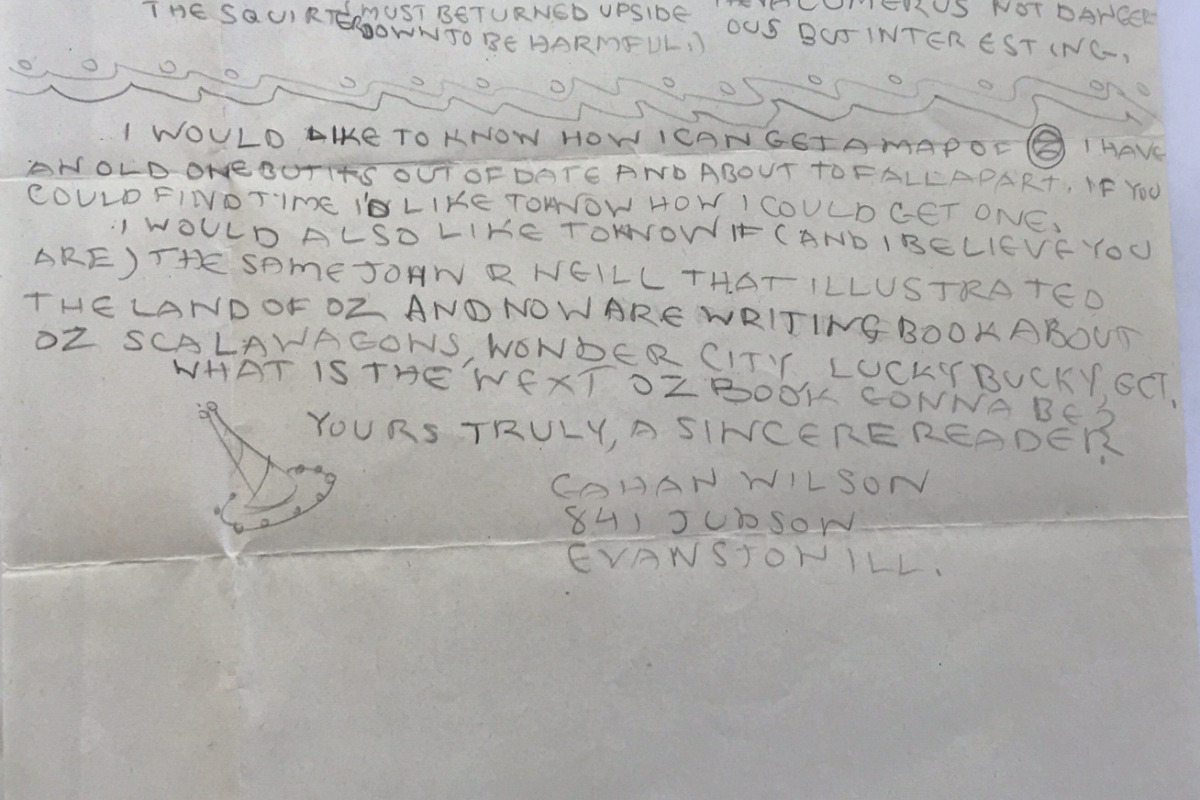 THE SQUIRTER MUST BE TURNED UPSIDE
DOWN TO BE HARMFUL.)
NOT DANGER
OUS BUT INTERESTING,
I WOULD LIKE TO KNOW HOW I CAN GET A MAP OF OZ I HAVE
AN OLD ONE BUT ITS OUT OF DATE AND ABOUT TO FALL APART. IF YOU
COULD FIND TIME I'D LIKE TO KNOW HOW I COULD GET ONE.
I WOULD ALSO LIKE TO KNOW IF (AND I BELIEVE YOU
ARE) THE SAME JOHN R NEILL THAT ILLUSTRATED
THE LAND OF OZ AND NOW ARE WRITING BOOK ABOUT
OZ SCALAWAGONS, WONDER CITY, LUCKY BUCKY, ECT.
WHAT IS THE NEXT OZ BOOK GONNA BE?
YOURS TRULY, A SINCERE READER
GAHAN WILSON
841 JUDSON
EVANSTON ILL.